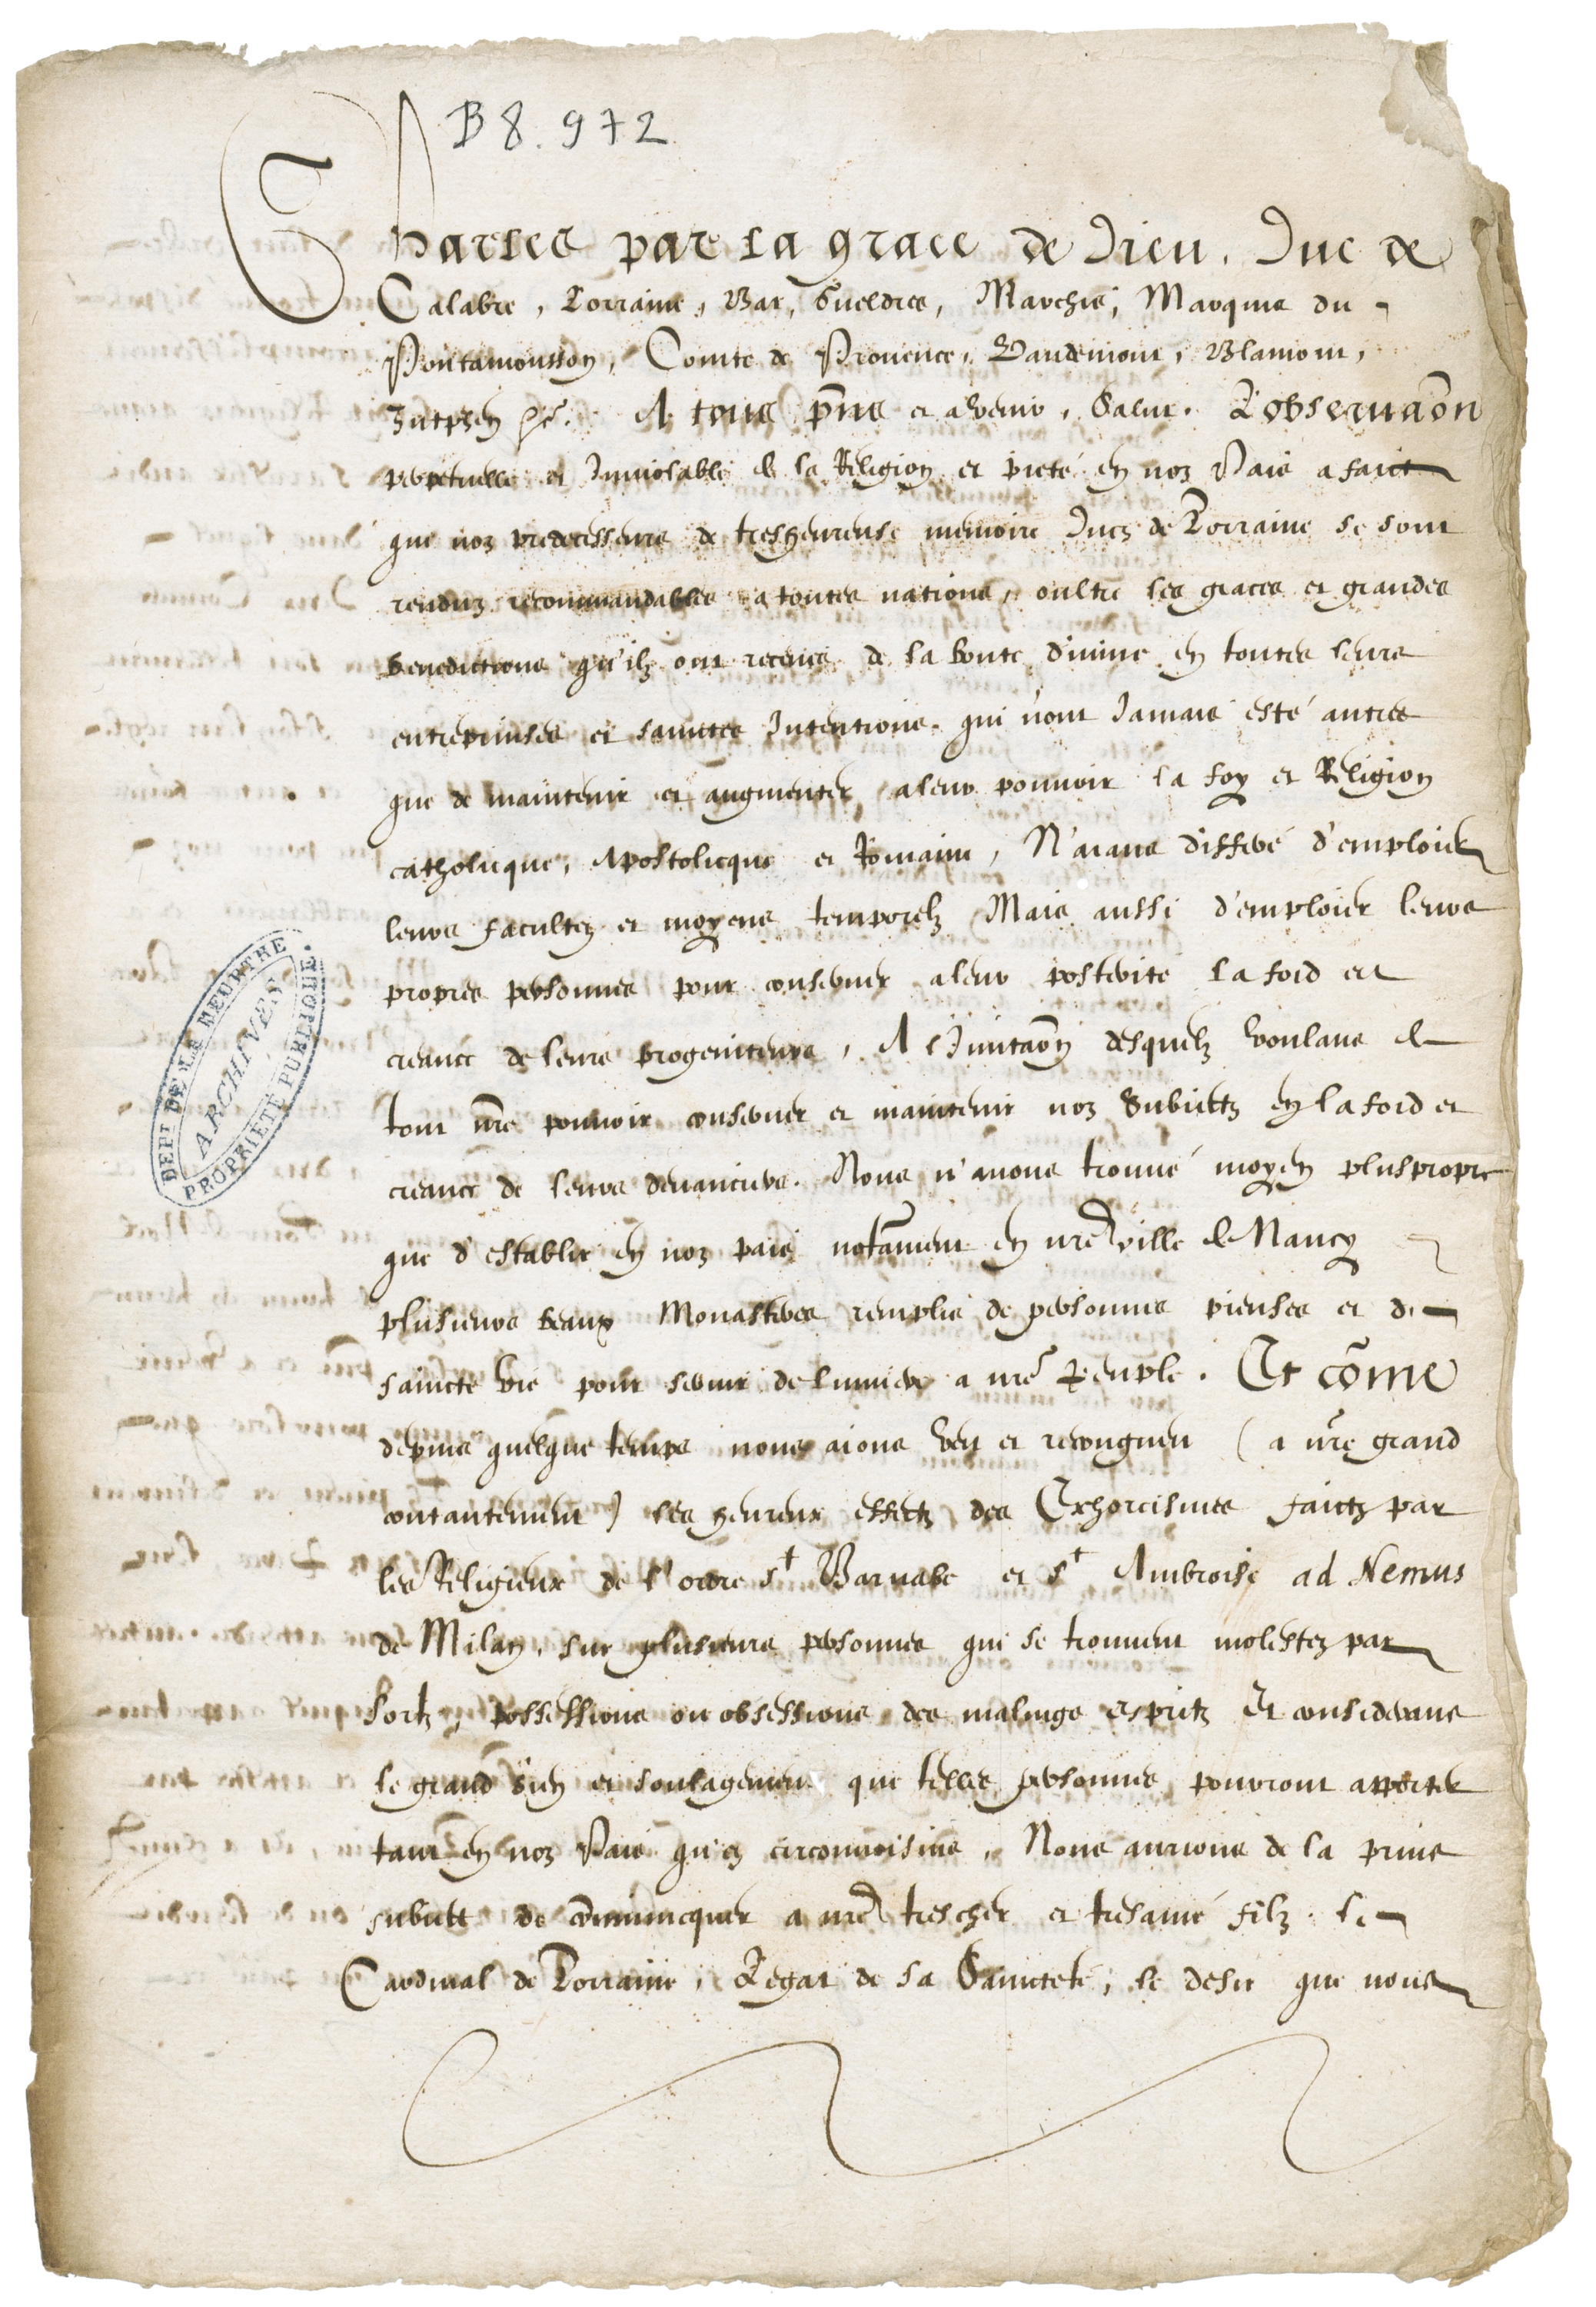 B 8. 972
Charles par la grace de Dieu, Duc de
Calabre, Lorraine, Bar, Gueldres, Marchis, Marquis du
Pontamousson, Comte de Prouence, Vaudemont, Blamont,
Zutphen &c. A tous pns et aduenir, Salut. L'obseruaon
perpetuelle et Inuiolable de la Religion et pieté en noz Pais a faict
que noz predecesseurs de tresheureuse memoire Ducz de Lorraine se sont
renduz recommandables a toutes nations, oultre les graces et grandes
benedictions qu'ilz ont receues de la bonte diuine en toutes leurs
entreprinses et sainctes Intentions. qui n'ont Jamais esté autres
que de maintenir et augmenter a leur pouuoir la foy et Religion
catholicque, Apostolicque et Romaine, N'aians differé d'emploier
leurs facultez et moyens temporelz Mais aussi d'emploier leurs
propres personnes pour conseruer a leur posterité la foid et
creance de leurs progeniteurs, A l'Imitaon desquelz voulans de
tout nre pouuoir conseruer et maintenir noz Subiectz en la foid et
creance de leurs deuanciers. Nous n'auons trouué moyen plus propre
que d'establir en noz pais notament en nre ville de Nancy
plusieurs beaux Monasteres remplis de personnes pieuses et de
saincte vie pour seruir de lumiere a nre Peuple. Et come
depuis quelque temps nous aions veu et recongneu (a nre grand
contantement) les heureux effectz des Exhorcismes faictz par
les Religieux de l'ordre st Barnabe et st Ambroise ad Nemus
de Milan, sur plusieurs personnes qui se trouuent molestez par
sortz, possessions ou obsessions des malings espritz Et considerans
le grand bien et soulagement que telles personnes pouuront apporter
tant en noz Pais qu'ez circonuoisins, Nous aurions de la prins
subiect de communicquer a nre trescher et tresamé filz le
Cardinal de Lorraine, Legat de sa Saincteté, le desir que nous
DEPT DE LA MEURTHE
ARCHIVES
PROPRIÉTÉ PUBLIQUE